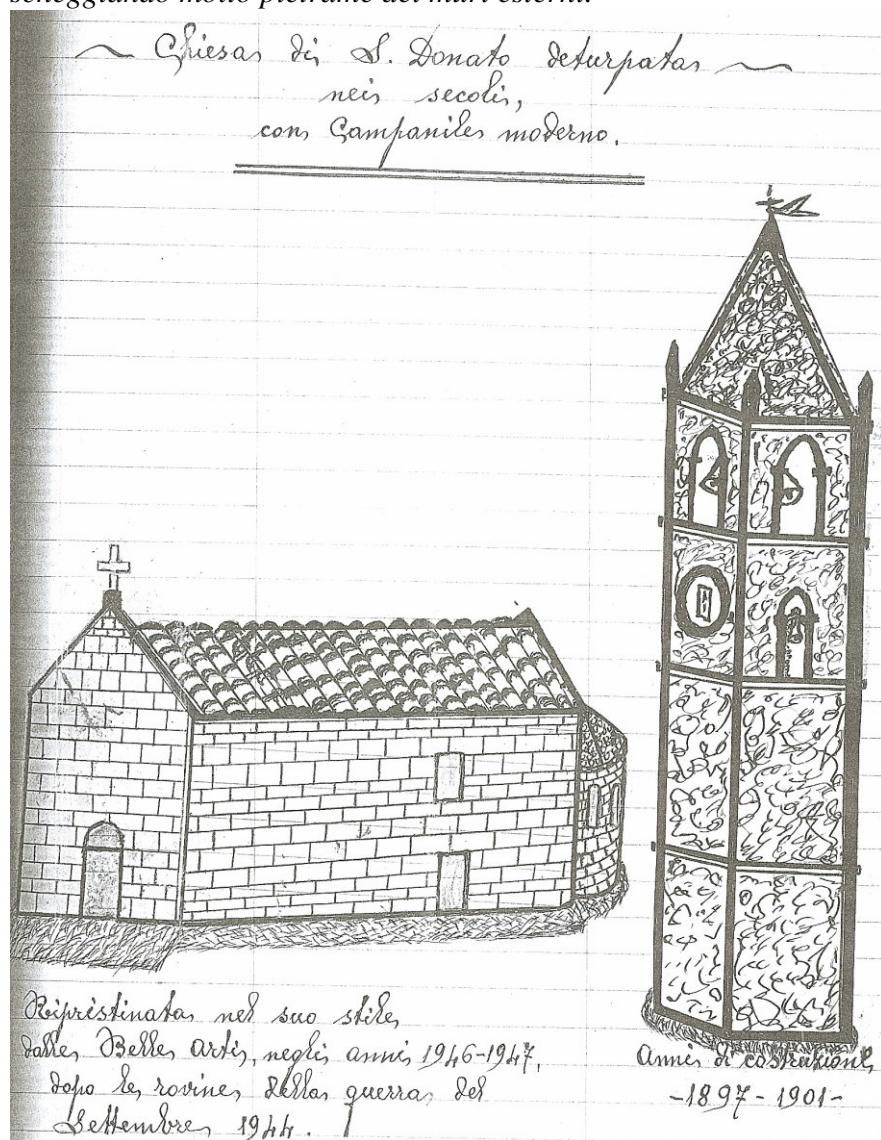 scheggiando molto pietrame dei muri esterni.
~ Chiesa di S. Donato deturpata ~
nei secoli,
con Campanile moderno.
Ripristinata nel suo stile
dalle Belle Arti, negli anni 1946-1947,
dopo le rovine della guerra del
Settembre 1944.
Anni di costruzione
-1897-1901-